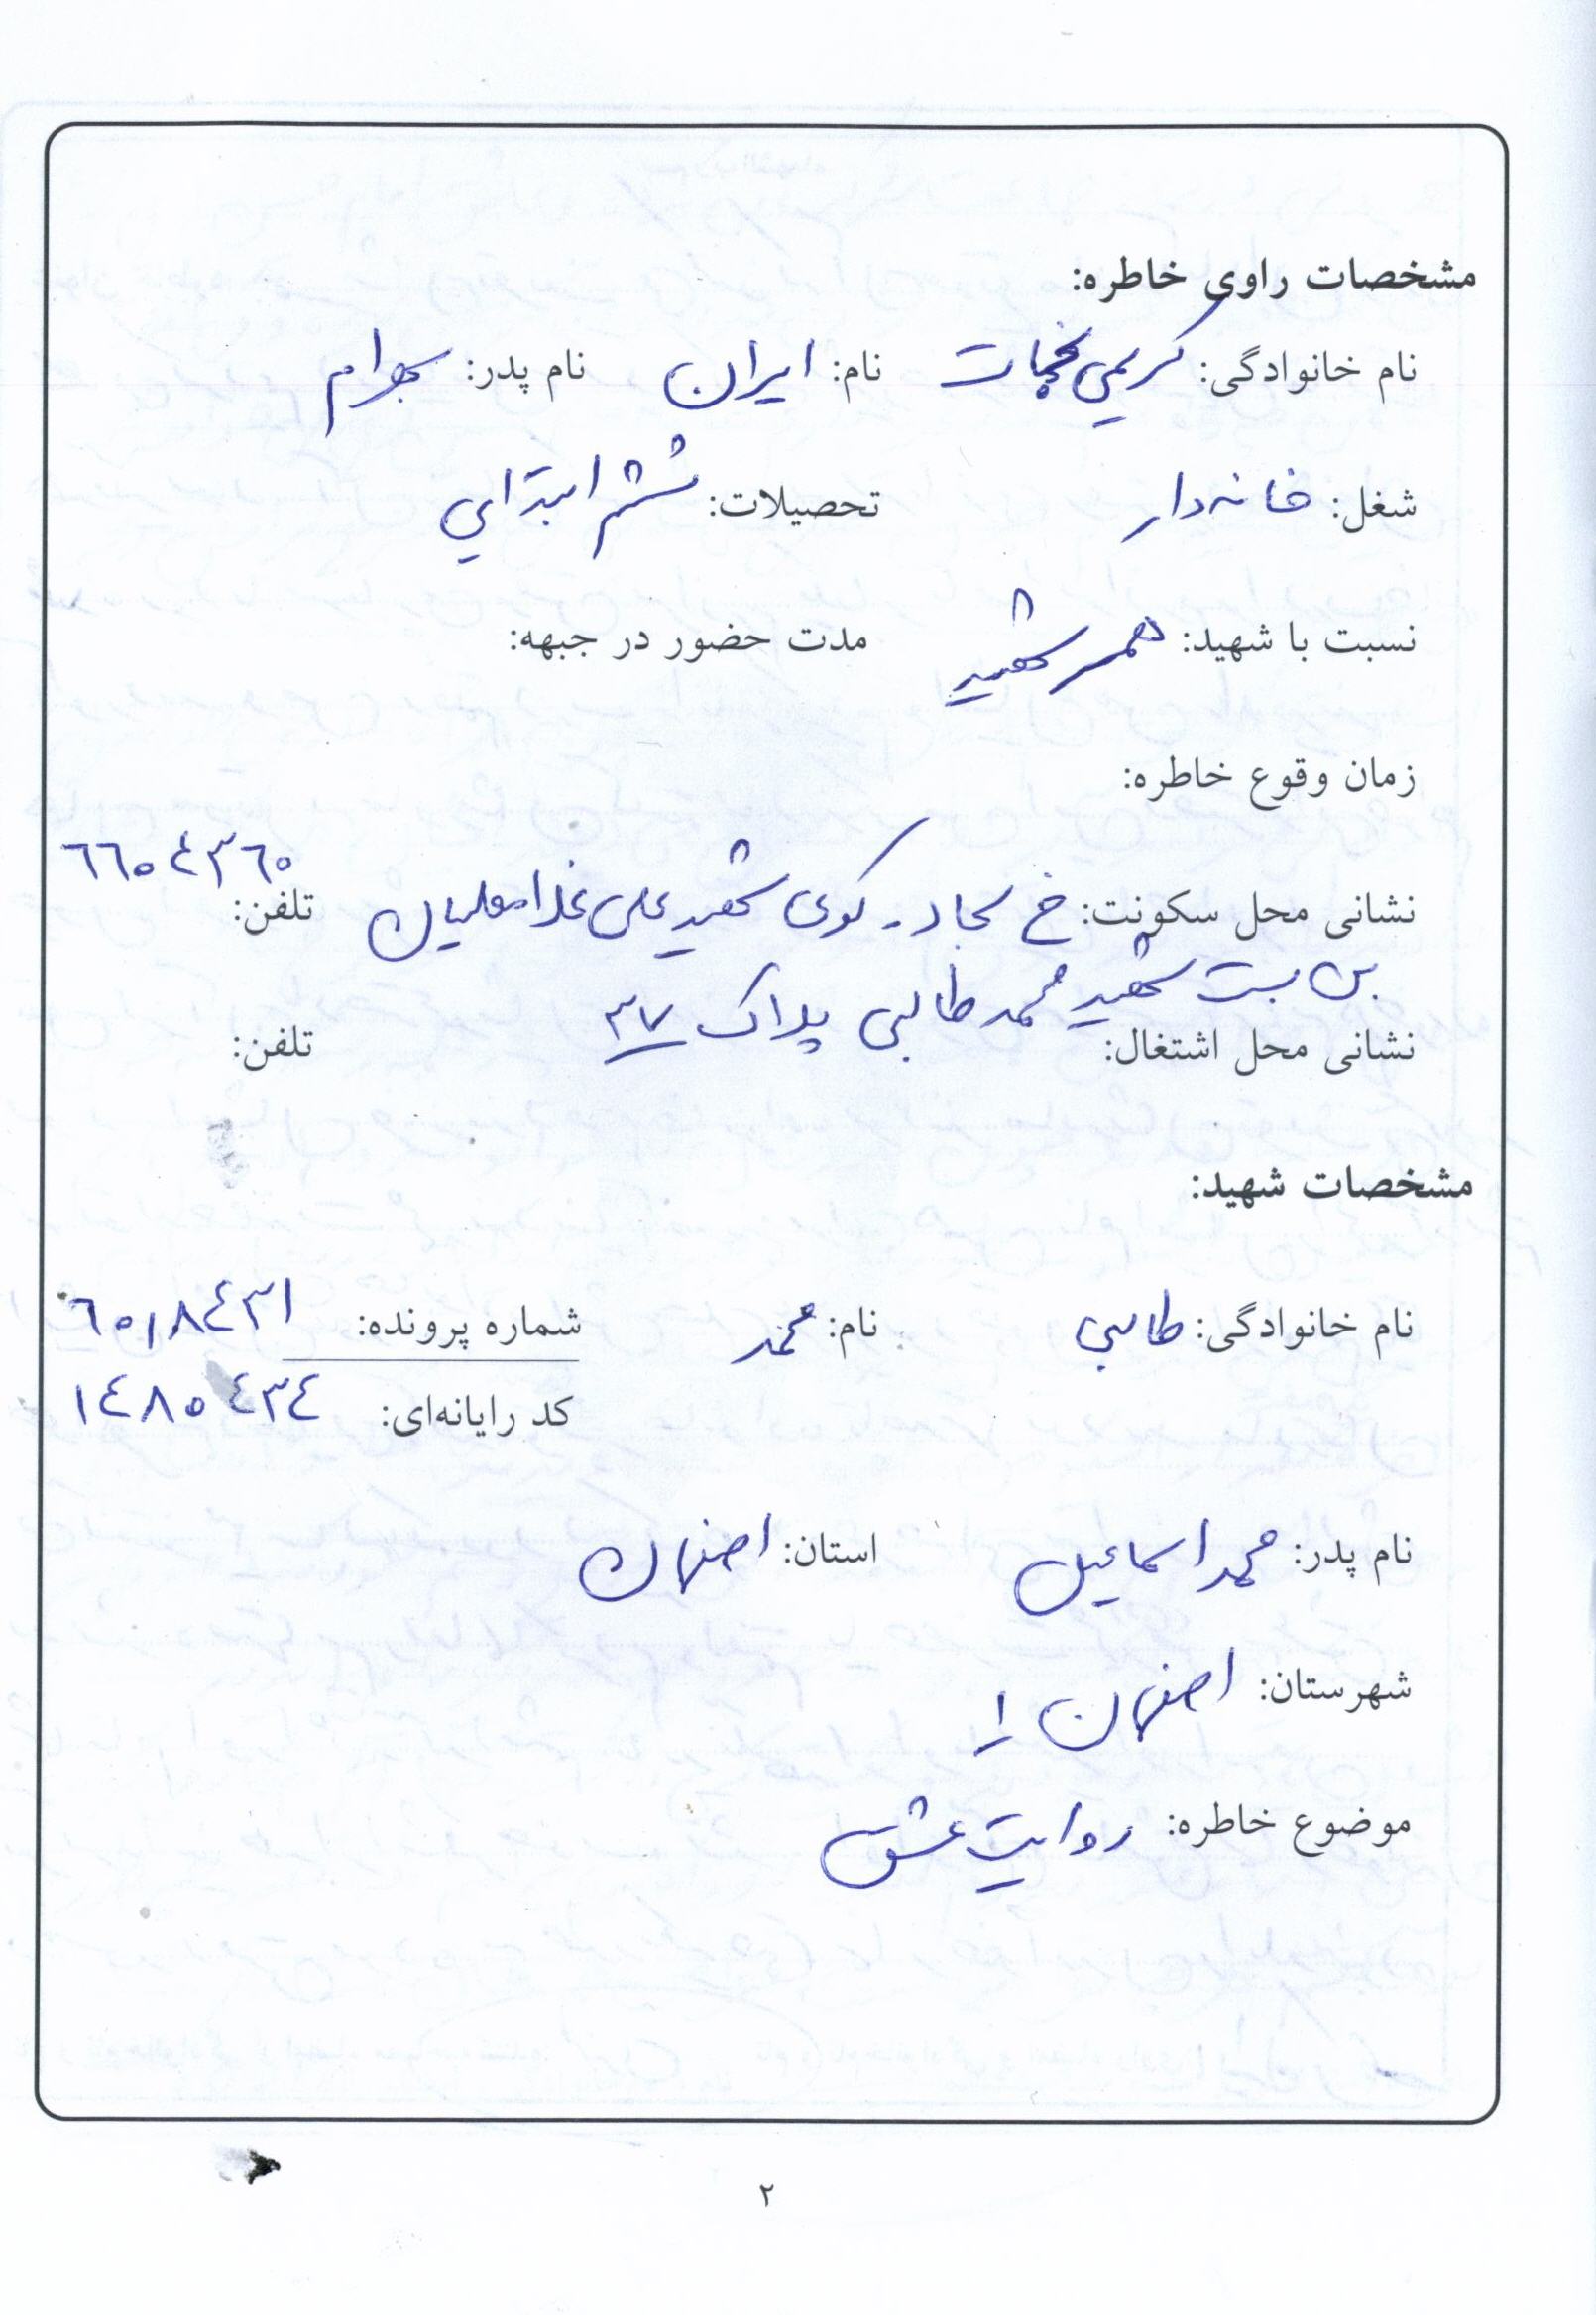 مشخصات راوی خاطره:
نام خانوادگی: کریمی نام: ایران نام پدر: بهرام
شغل: خانه‌دار تحصیلات: ششم ابتدایی
نسبت با شهید: همسر شهید مدت حضور در جبهه:
زمان وقوع خاطره:
نشانی محل سکونت: خ سجاد - کوی شهید علی غلامعلیان تلفن: ٦٦٥٤٣٦٥
بن بست شهید محمد طالبی پلاک ۳۷
نشانی محل اشتغال: تلفن:
مشخصات شهید:
نام خانوادگی: طالبی نام: محمد شماره پرونده: ٦٥١٨٤٣١
کد رایانه‌ای: ١٤٨٥٤٣٤
نام پدر: محمد اسماعیل استان: اصفهان
شهرستان: اصفهان ۱
موضوع خاطره: روایت عشق
۲